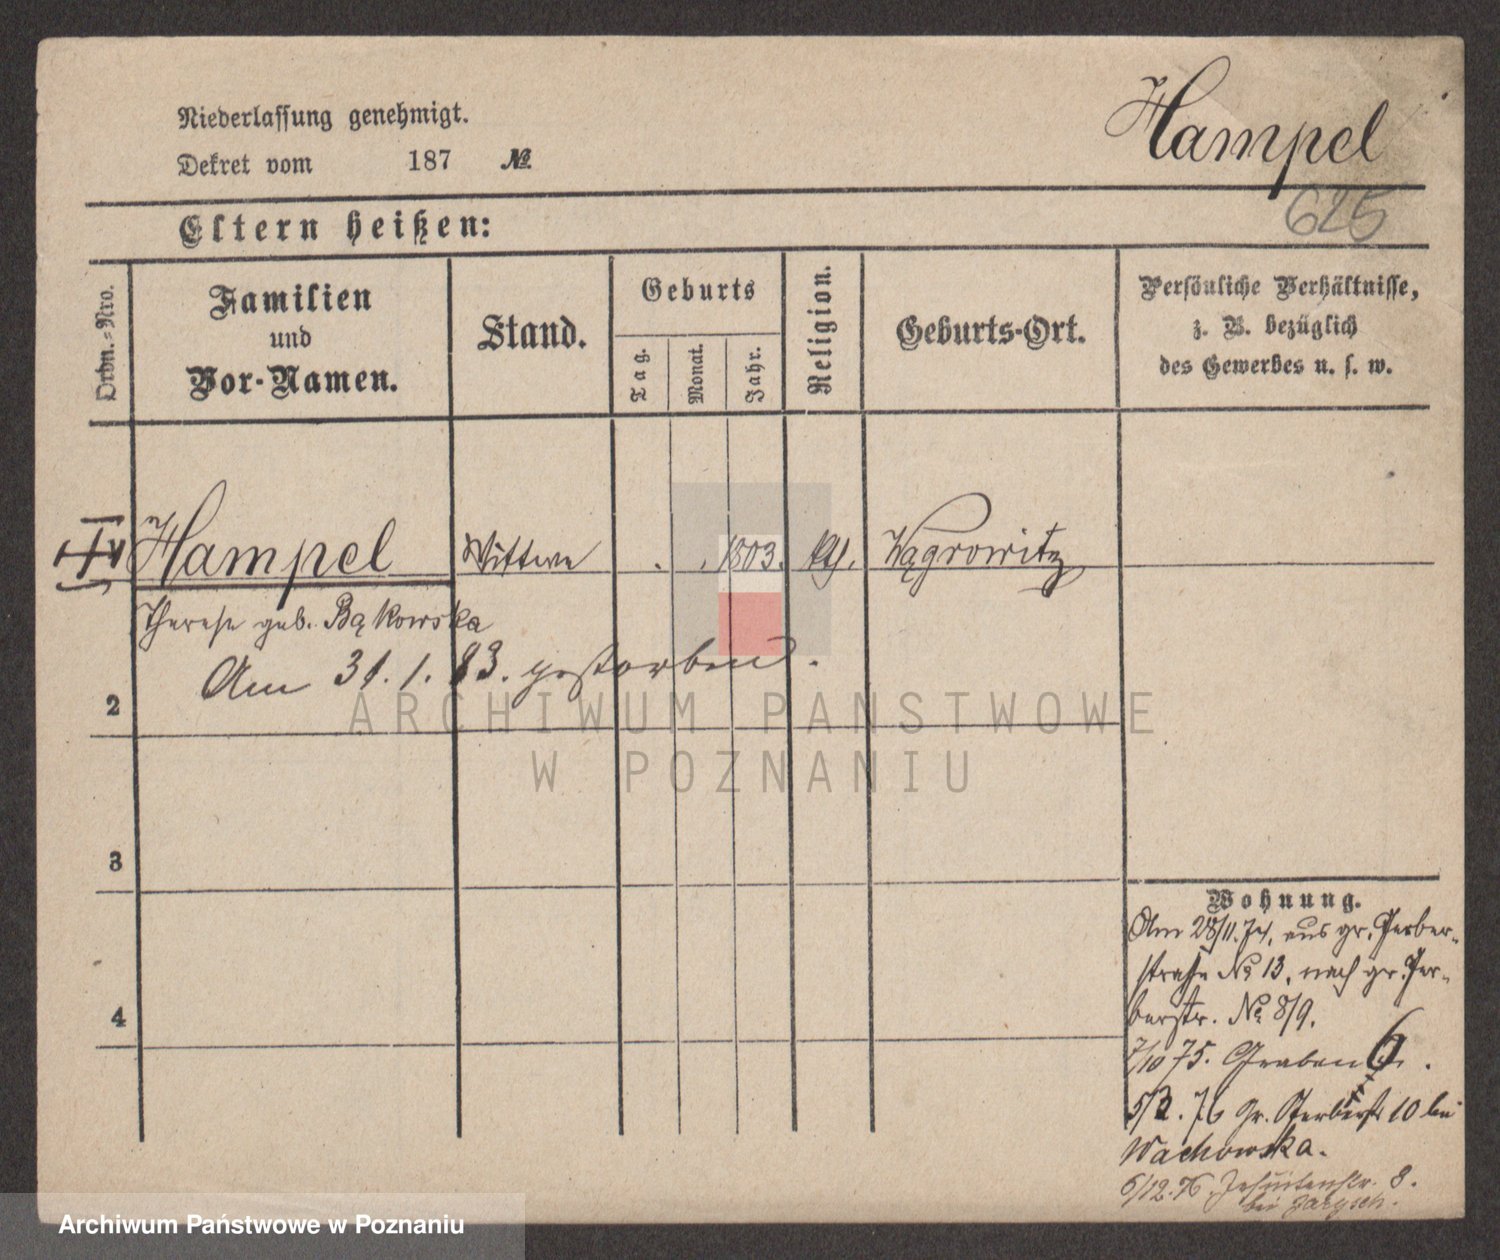 Hampel
Niederlassung genehmigt.
Dekret vom 187 №
625
Eltern heißen:
Ordn.-Nro.
Familien
und
Vor-Namen.
Stand.
Geburts
Tag.
Monat.
Jahr.
Religion.
Geburts-Ort.
Persönliche Verhältnisse,
z. B. bezüglich
des Gewerbes u. s. w.
Hampel Wittwe . . 1803. Wągrowitz
Therese geb. Bąkowska
Am 31.1.83. gestorben.
2
3
4
Wohnung.
Am 28/11.74. aus gr. Gerber-
straße № 13, nach gr. Ger-
berstr. № 8/9.
7/10 75. Graben 6.
5/3.76 Gr. Gerberst 10 bei
Wachowska.
6/12.76 Jesuitenstr. 8.
bei
ARCHIWUM PAŃSTWOWE
W POZNANIU
Archiwum Państwowe w Poznaniu